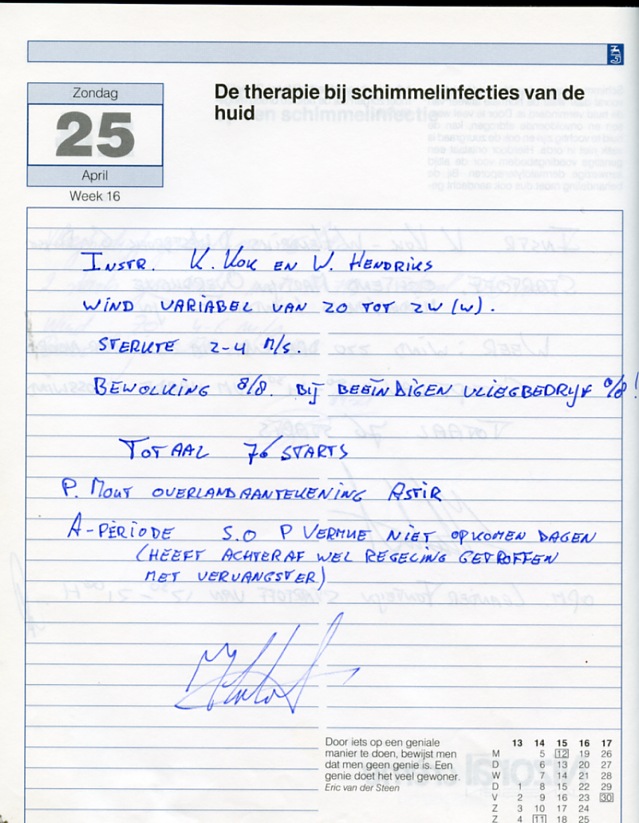 Zondag
25
April
Week 16
De therapie bij schimmelinfecties van de
huid
INSTR. K. KOK EN W. HENDRIKS
WIND VARIABEL VAN ZO TOT ZW (W).
STERKTE 2-4 M/S.
BEWOLKING 8/8. BIJ BEËINDIGEN VLIEGBEDRIJF 0/8!
TOTAAL 76 STARTS
P. MOUT OVERLANDAANTEKENING ASTIR
A-PERIODE S.O P VERMUE NIET OPKOMEN DAGEN
(HEEFT ACHTERAF WEL REGELING GETROFFEN
MET VERVANGSTER)
Door iets op een geniale
manier te doen, bewijst men
dat men geen genie is. Een
genie doet het veel gewoner.
Eric van der Steen
13 14 15 16 17
M 5 12 19 26
D 6 13 20 27
W 7 14 21 28
D 1 8 15 22 29
V 2 9 16 23 30
Z 3 10 17 24
Z 4 11 18 25